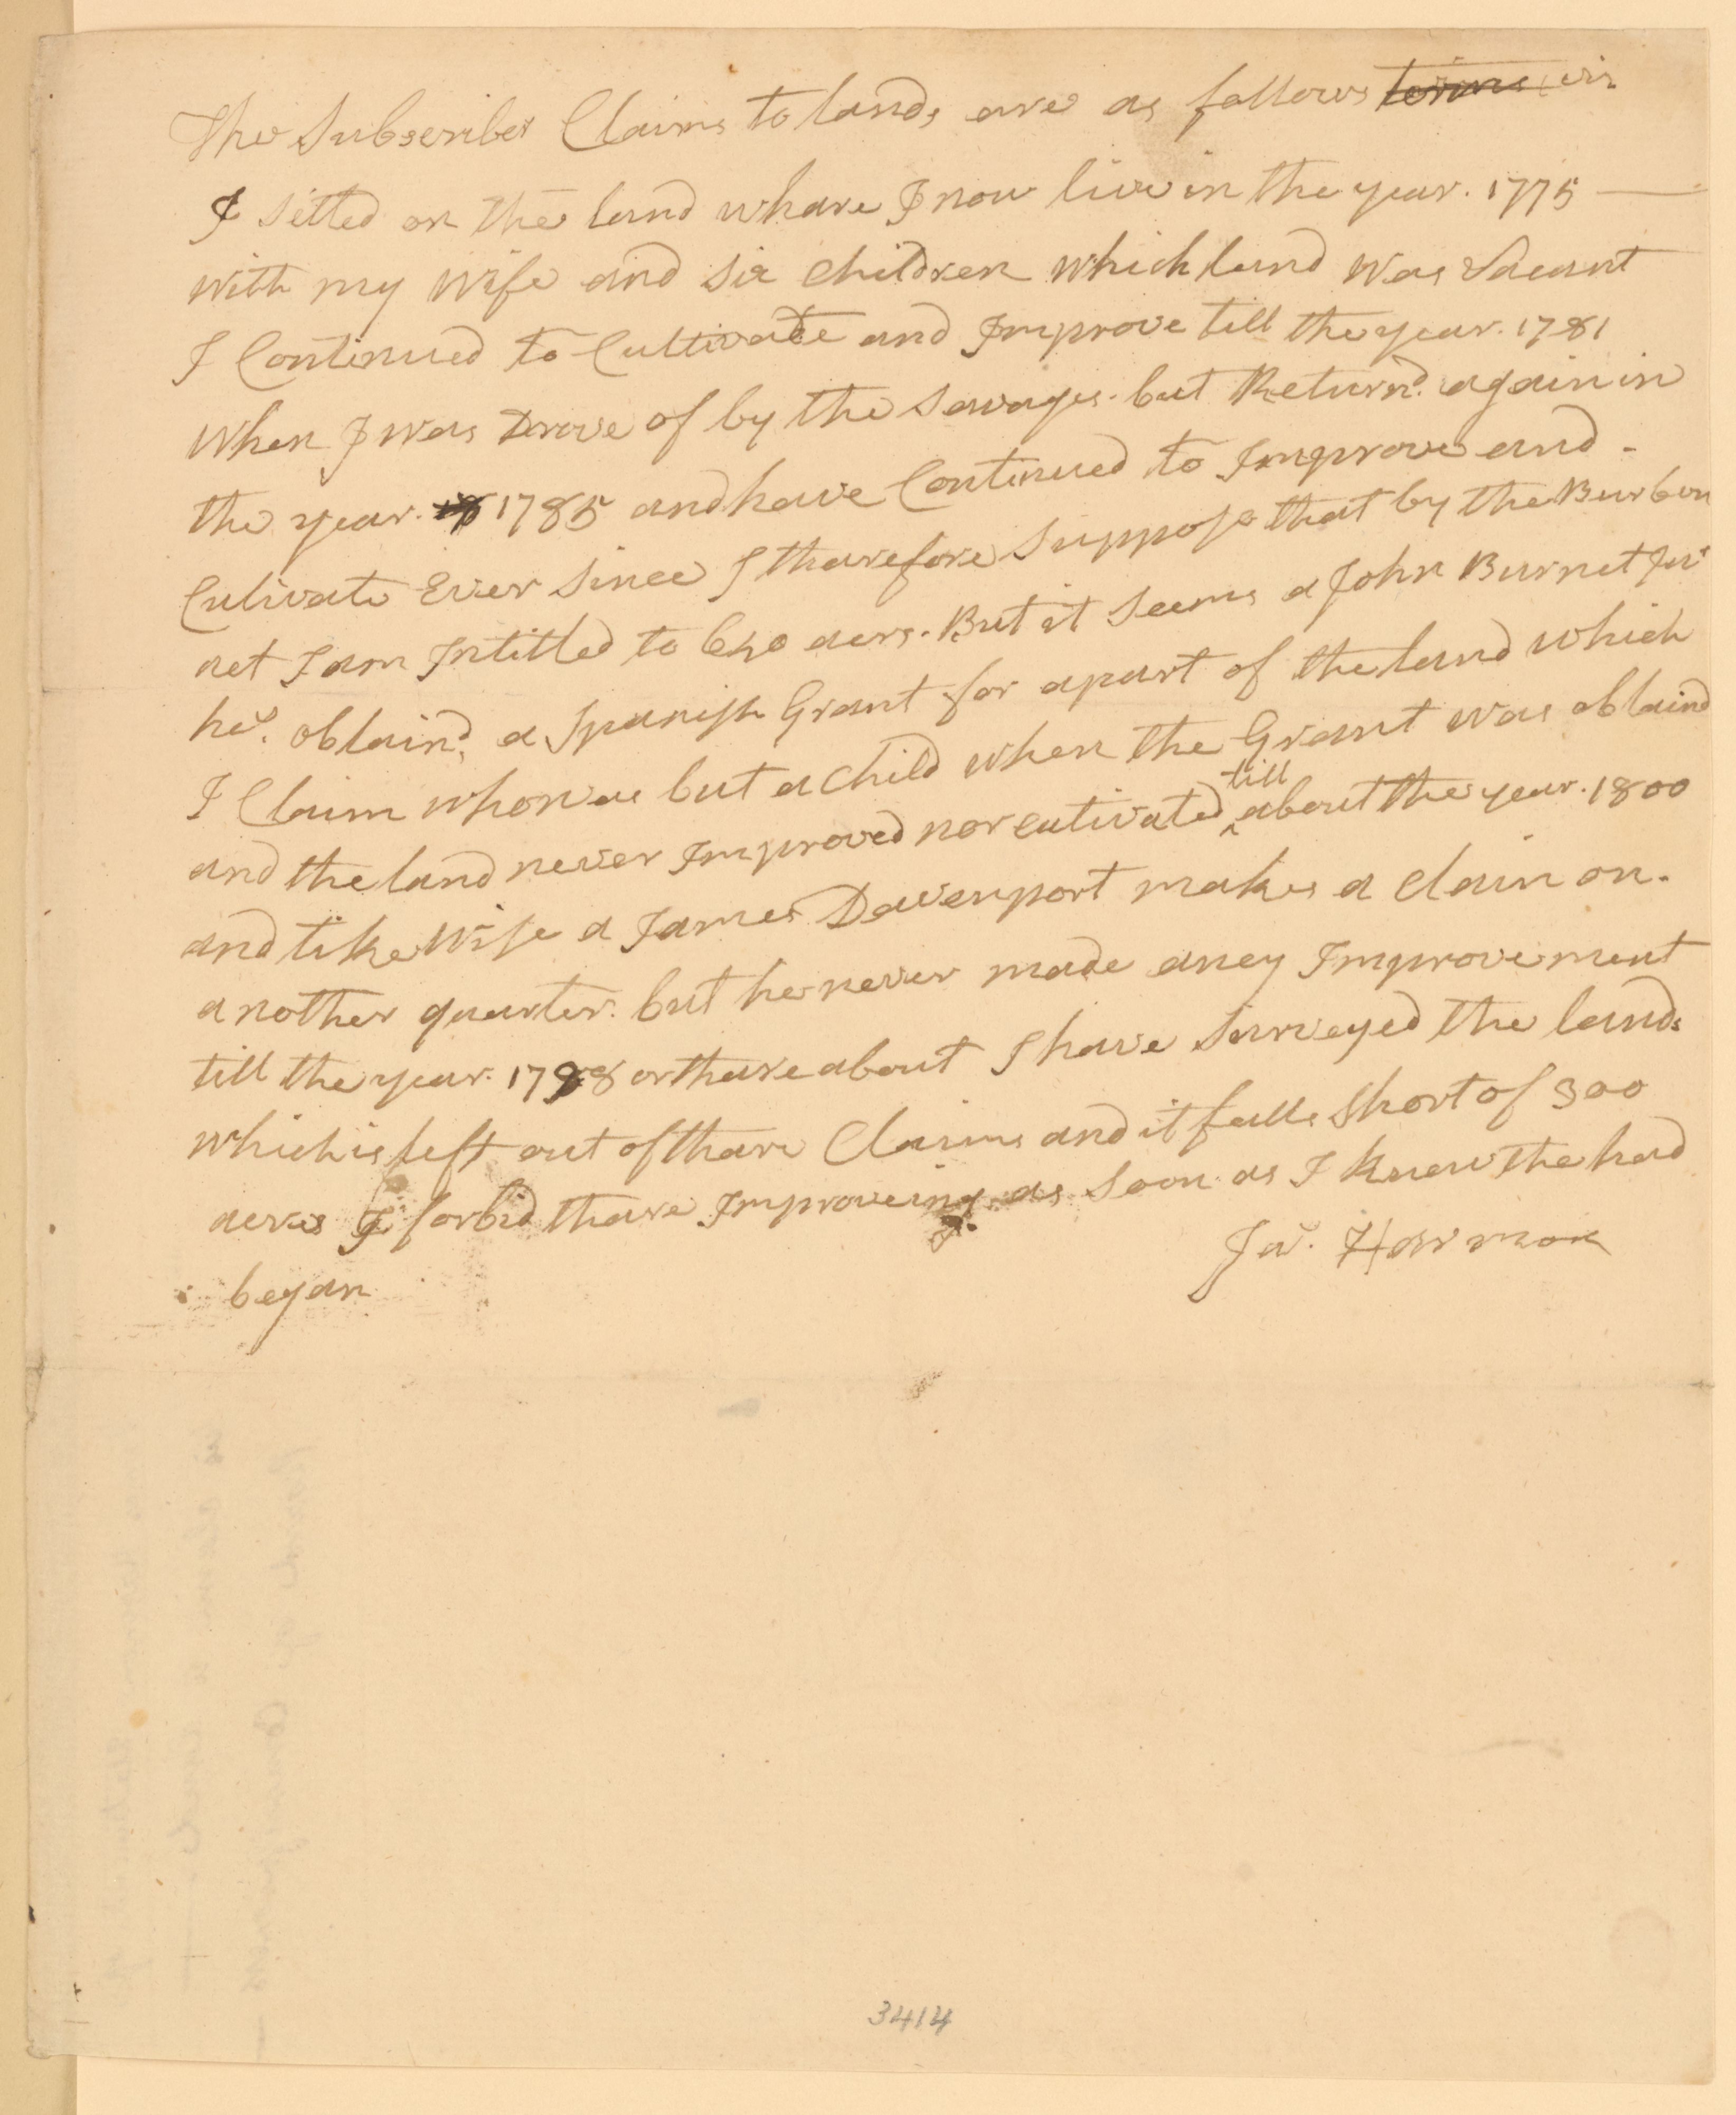 The Subscriber Claims to lands are as follows terms viz.
I Sitled on the land whare I now live in the year. 1775 —
with my Wife and Six Children which land was Vacant
I Continued to Cultivate and Improve till the year. 1781
When I was Drove of by the Savages. but Returnd. again in
the year. 1785 and have Continued to Improve and -
Cultivate Ever Since I tharefore Suppose that by the Burbon
act I am Intitled to 640 acrs. But it Seems a John Burnet Jur
hes. obtaind, a Spanish Grant for apart of the land which
I Claim who was but a Child when the Grant was obtaind
and the land never Improved nor cutivated till about the year. 1800
and like Wise a James Davenport makes a claim on.
another quarter. but he never made aney Improvement
till the year. 1798 or thareabout I have Surveyed the lands
which is left out of thare Claims and it falls Short of 300
acres I forbid thare Improveing as Soon as I knew the had
began
Ja. Harmon
3414